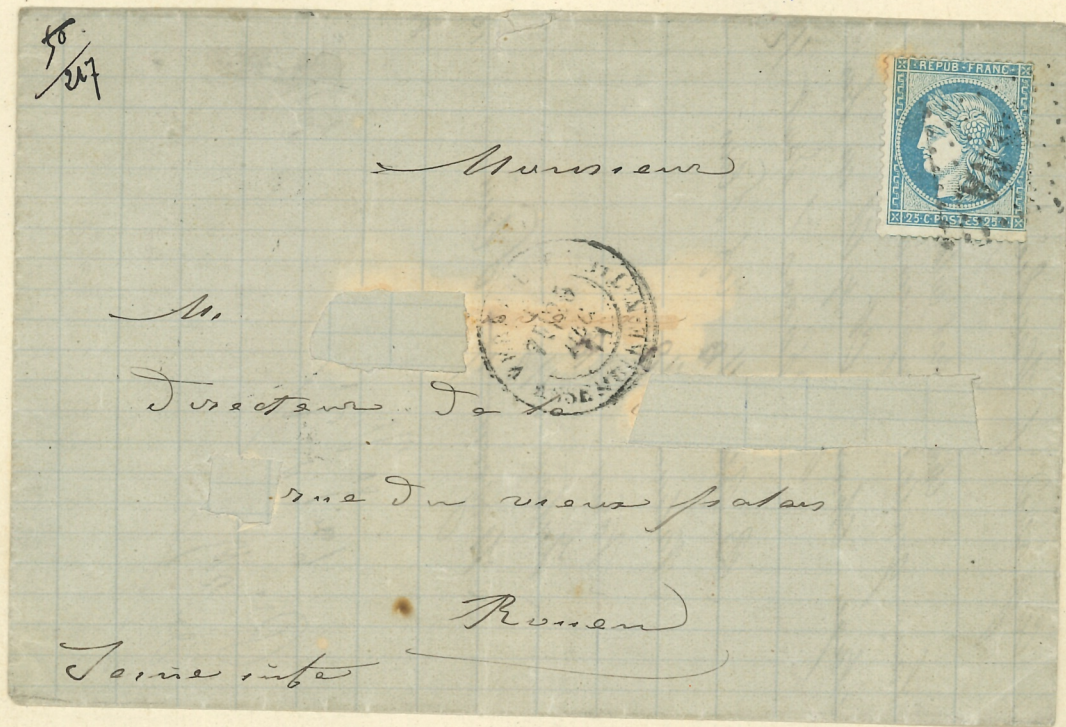 56
217
REPUB·FRANC
25·C·POSTES·25
Monsieur
M.
Directeur de la
rue du vieux palais
Rouen
Seine infre